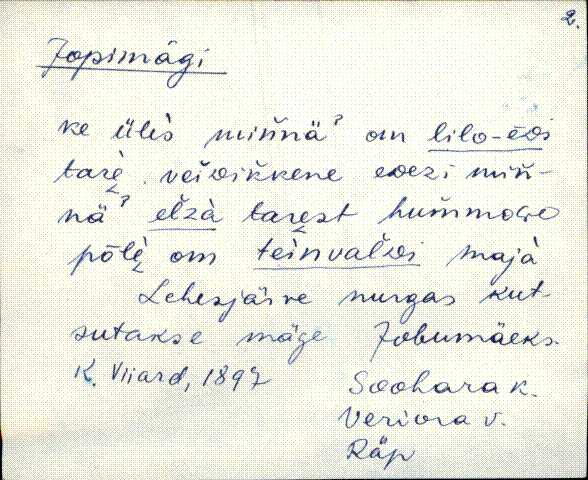 2.
Jopimägi
ke üles miññäˀ om lilo-
tarè veidikkene edezi miñ-
näˀ elzà tarest hummogo
põlè om teinvaldi majà
Lehesjärve nurgas kut-
sutakse mäge Jobumäeks.
K. Viiard, 1897
Soohara k.
Veriora v.
Räp